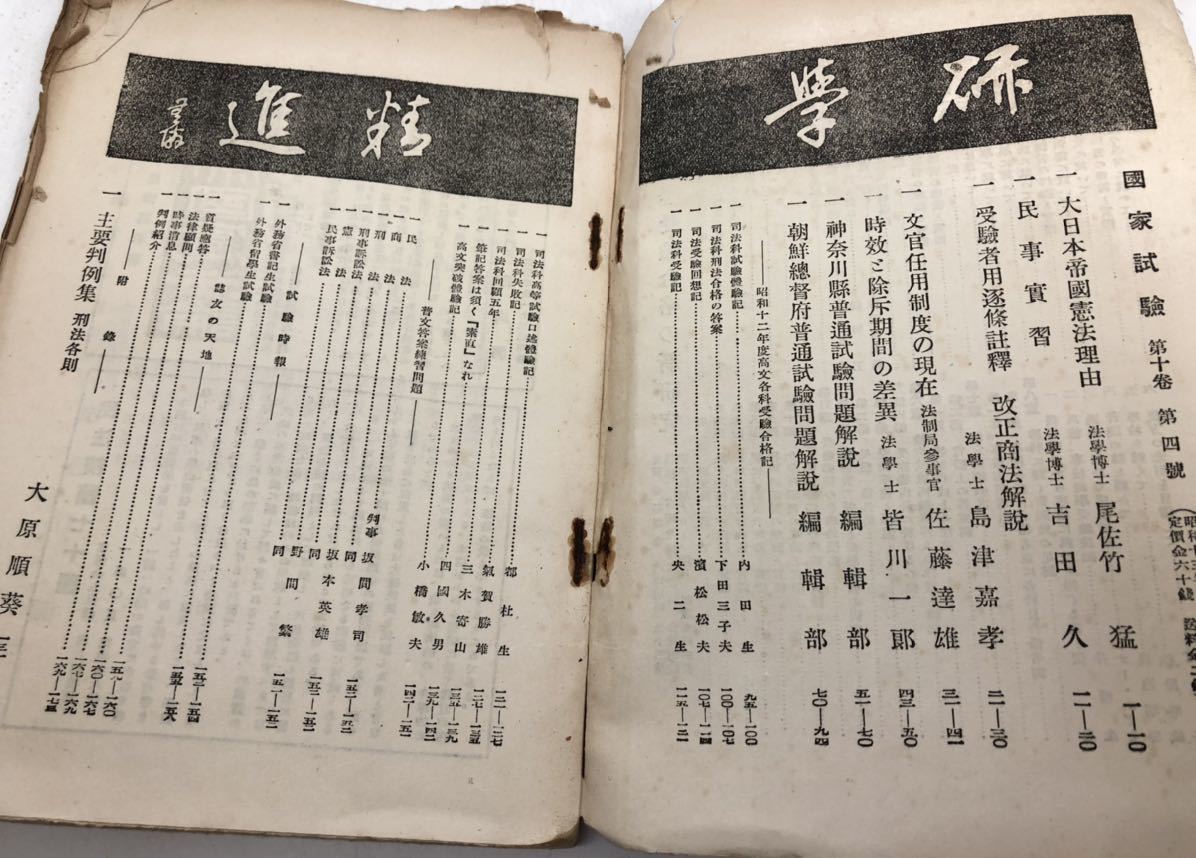 研學
國家試驗 第十卷 第四號
定價金六十錢
一 大日本帝國憲法理由 法學博士 尾佐竹猛 一—一〇
一 民事實習 法學博士 吉田久 一一—二〇
一 受驗者用逐條註釋 改正商法解說 法學士 島津嘉孝 二一—三〇
一 文官任用制度の現在 法制局參事官 佐藤達雄 三一—四二
一 時效と除斥期間の差異 法學士 皆川一郞 四三—五〇
一 神奈川縣普通試驗問題解說 編輯部 五一—七〇
一 朝鮮總督府普通試驗問題解說 編輯部 七〇—九四
——昭和十二年度高文各科受驗合格記——
一 司法科試驗體驗記 內田生 九五—一〇〇
一 司法科刑法合格の答案 下田三子夫 一〇〇—一〇七
一 司法受驗回想記 濱松松夫 一〇七—一一四
一 司法科受驗記 央二生 一一五—一二一
精進
一 司法科高等試驗口述體驗記 都杜生 一二一—一二七
一 司法科失敗記 氣賀勝雄 一二七—一三五
一 司法科回顧五年 三木寄山 一三五—一三九
一 筆記答案は須く『素直』なれ 四國久男 一三九—一四二
一 高文突破體驗記 小橋敏夫 一四二—一五一
——普文答案練習問題——
一 民法 判事 坂間孝司 一五一—一五二
一 商法 同
一 刑法 坂本英雄 一五二—一五二
一 刑事訴訟法 同
一 憲法 野間繁 一五一—一五二
一 民事訴訟法 同
——試驗時報——
一 外務省書記生試驗
一 外務省留學生試驗
——誌友の天地——
一 質疑應答 一五三—一五四
一 法律顧問
一 時事消息 一五九—一六〇
一 判例紹介 一六〇—一六七
——附錄——
一 主要判例集 刑法各則 一六九—一七三
大原順葵